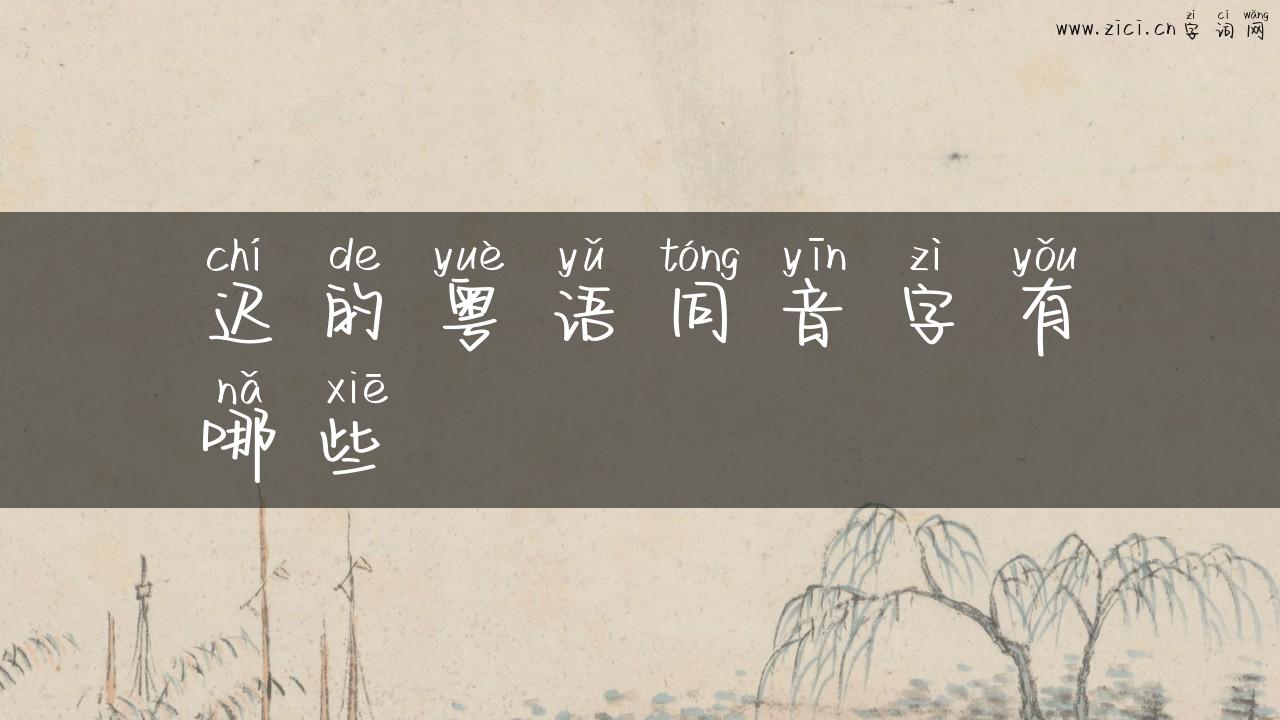 zì cí wǎng
www.zici.cn 字词网
chí de yuè yǔ tóng yīn zì yǒu
迟的粤语同音字有
nǎ xiē
哪些